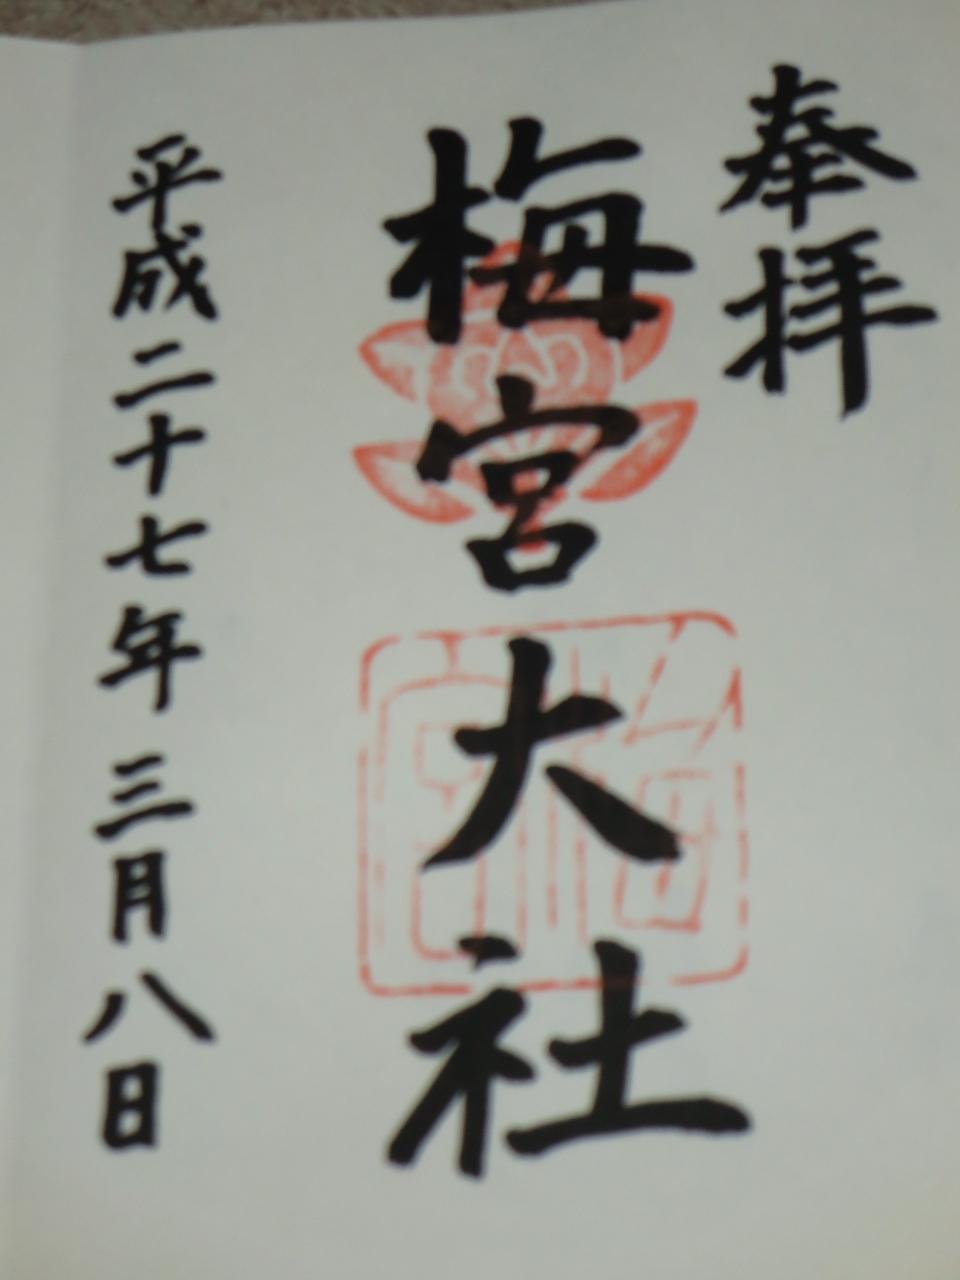 奉拝
梅宮大社
平成二十七年三月八日